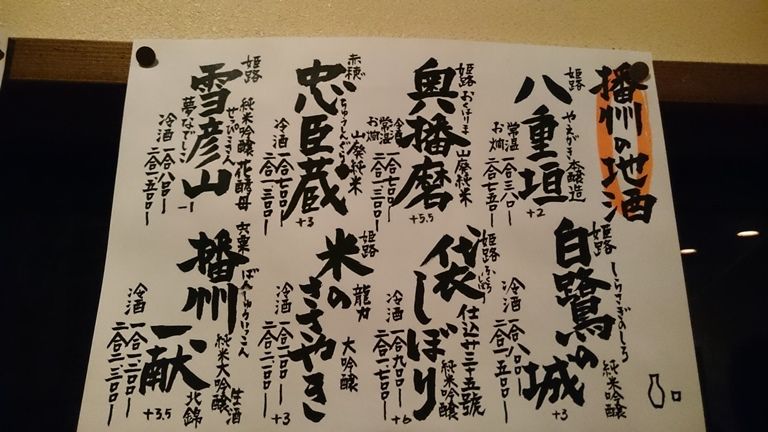 播州の地酒
姫路
やえがき 本醸造
八重垣
+2
常温
お燗
二合 七五〇ー
姫路
しらさぎのしろ
純米吟醸
白鷺の城
+3
冷酒
一合 八〇〇ー
二合 一五〇〇ー
姫路
おくはりま
山廃純米
奥播磨
+5.5
冷酒
常温
お燗
姫路
ふくろしぼり
仕込廿三十五號
純米吟醸
袋しぼり
+6
冷酒
一合 九〇〇ー
二合 一七〇〇ー
赤穂
ちゅうしんぐら
山廃純米
忠臣蔵
+3
冷酒
一合 七〇〇ー
二合 一三〇〇ー
姫路
龍力
大吟醸
米のささやき
+3
冷酒
姫路
純米吟醸 花酵母
せっぴこさん
雪彦山
冷酒
一合 八〇〇ー
二合 一五〇〇ー
宍粟
ばんしゅういっこん
生酒
純米大吟醸
北錦
播州一献
+3.5
冷酒
一合 一二〇〇ー
二合 二二〇〇ー